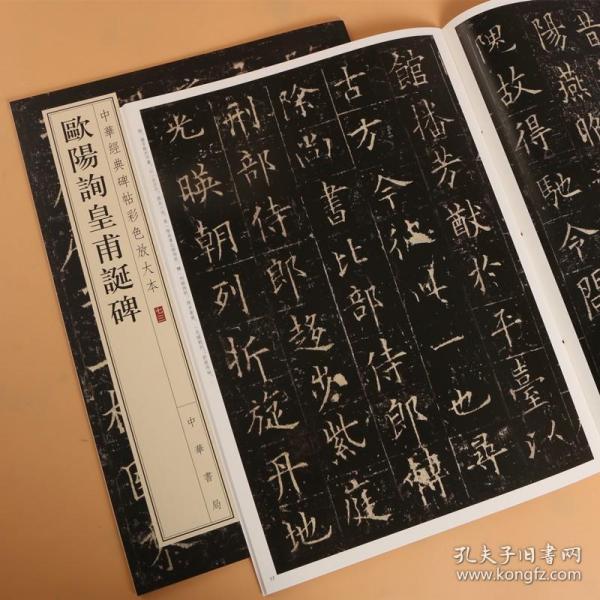 中華經典碑帖彩色放大本
七三
歐陽詢皇甫誕碑
中華書局
昔
陽燕昭
隗故得馳令問
館播芳猷於平臺以
古方今彼此一也尋
除尚書比部侍郎轉
刑部侍郎趍步紫庭
光暎朝列折旋丹地
17
孔夫子旧书网
www.kongfz.com